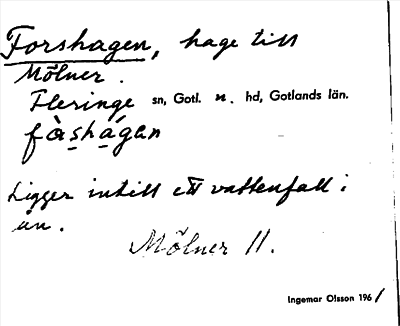 Forshagen, hage till
Mölner.
Fleringe sn, Gotl. n. hd, Gotlands län.
fàshágen
Ligger intill ett vattenfall i
ån.
Mölner 11.
Ingemar Olsson 1961